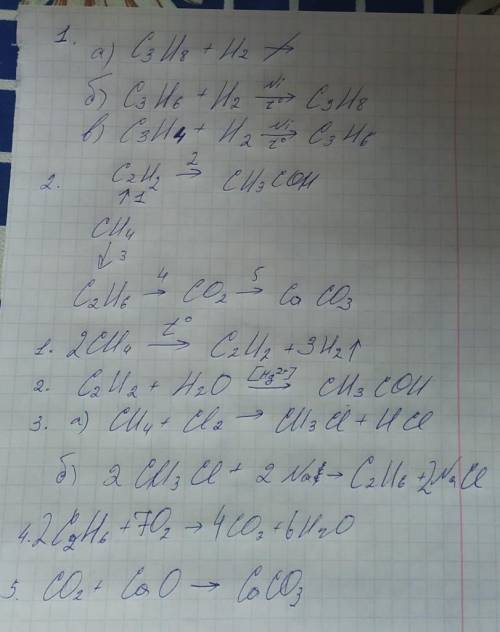 1.
а) C3H8 + H2 ↛
б) C3H6 + H2 Ni→t° C3H8
в) C3H4 + H2 Ni→t° C3H6
2. C2H2 2→ CH3COH
↑1
CH4
↓3
C2H6 4→ CO2 5→ CaCO3
1. 2CH4 t°→ C2H2 + 3H2↑
2. C2H2 + H2O [Hg2+]→ CH3COH
3. а) CH4 + Cl2 → CH3Cl + HCl
б) 2CH3Cl + 2Na → C2H6 + 2NaCl
4. 2C2H6 + 7O2 → 4CO2 + 6H2O
5. CO2 + CaO → CaCO3